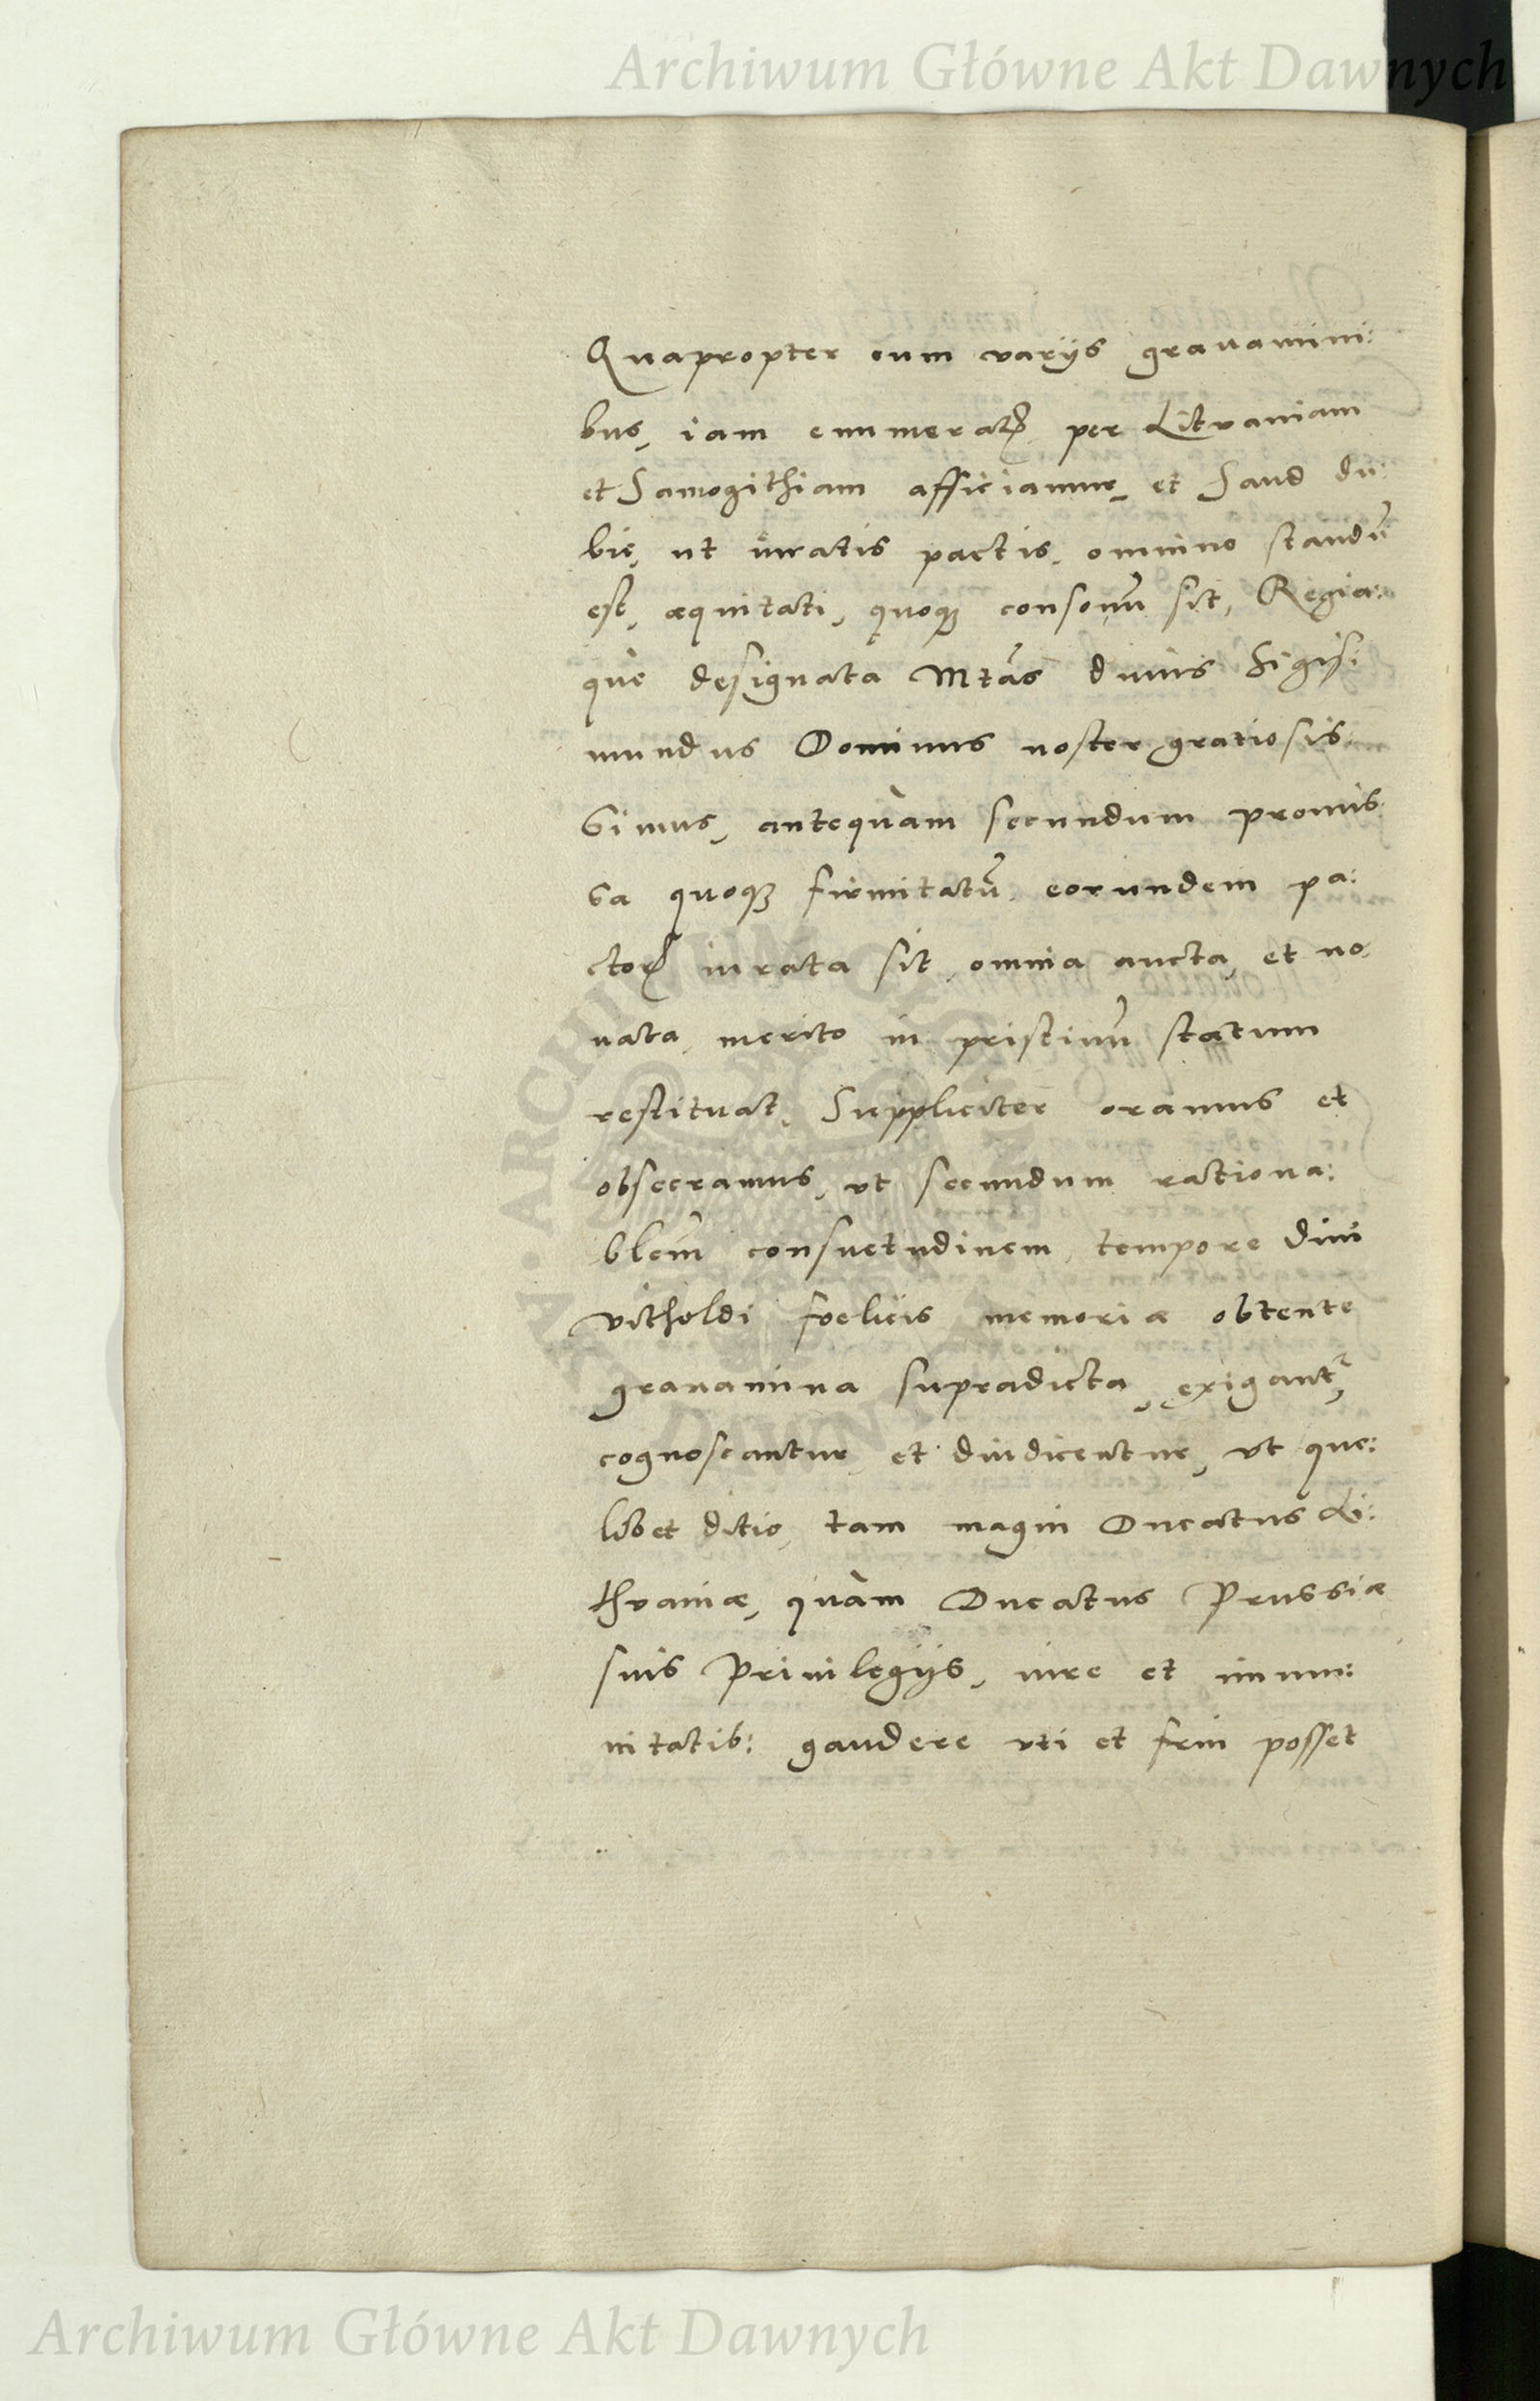 Archiwum Główne Akt Dawnych
Quapropter cum varijs grauamini:
bus, iam enumeratꝭ per Lituaniam
et Samogithiam afficiamur, et Haud du:
bie, ut iuratis pactis, omnino standū
est, æquitati, quoqꝫ consonū sit, Regia:
que designata Mtās diuus Sigis:
mundus Dominus noster gratiosis:
simus, antequàm secundum promis:
sa quoqꝫ firmitatū eorundem pa:
ctoꝝ iurata sit, omnia aucta, et no:
uata, merito in pristinū statum
restituat, Suppliciter oramus et
obsecramus, vt secundum rationa:
blem̄ consuetudinem, tempore diui
Vitholdi fœlicis memoriæ obtente
grauamina supradicta, exigantʳ,
cognoscantur et diiudicentur, vt que:
libet ditio, tam magni Ducatus Li:
thvaniæ, quàm Ducatus Prussiæ
suis Priuilegijs, iure et immu:
nitatib: gaudere vti et frui posset
Archiwum Główne Akt Dawnych